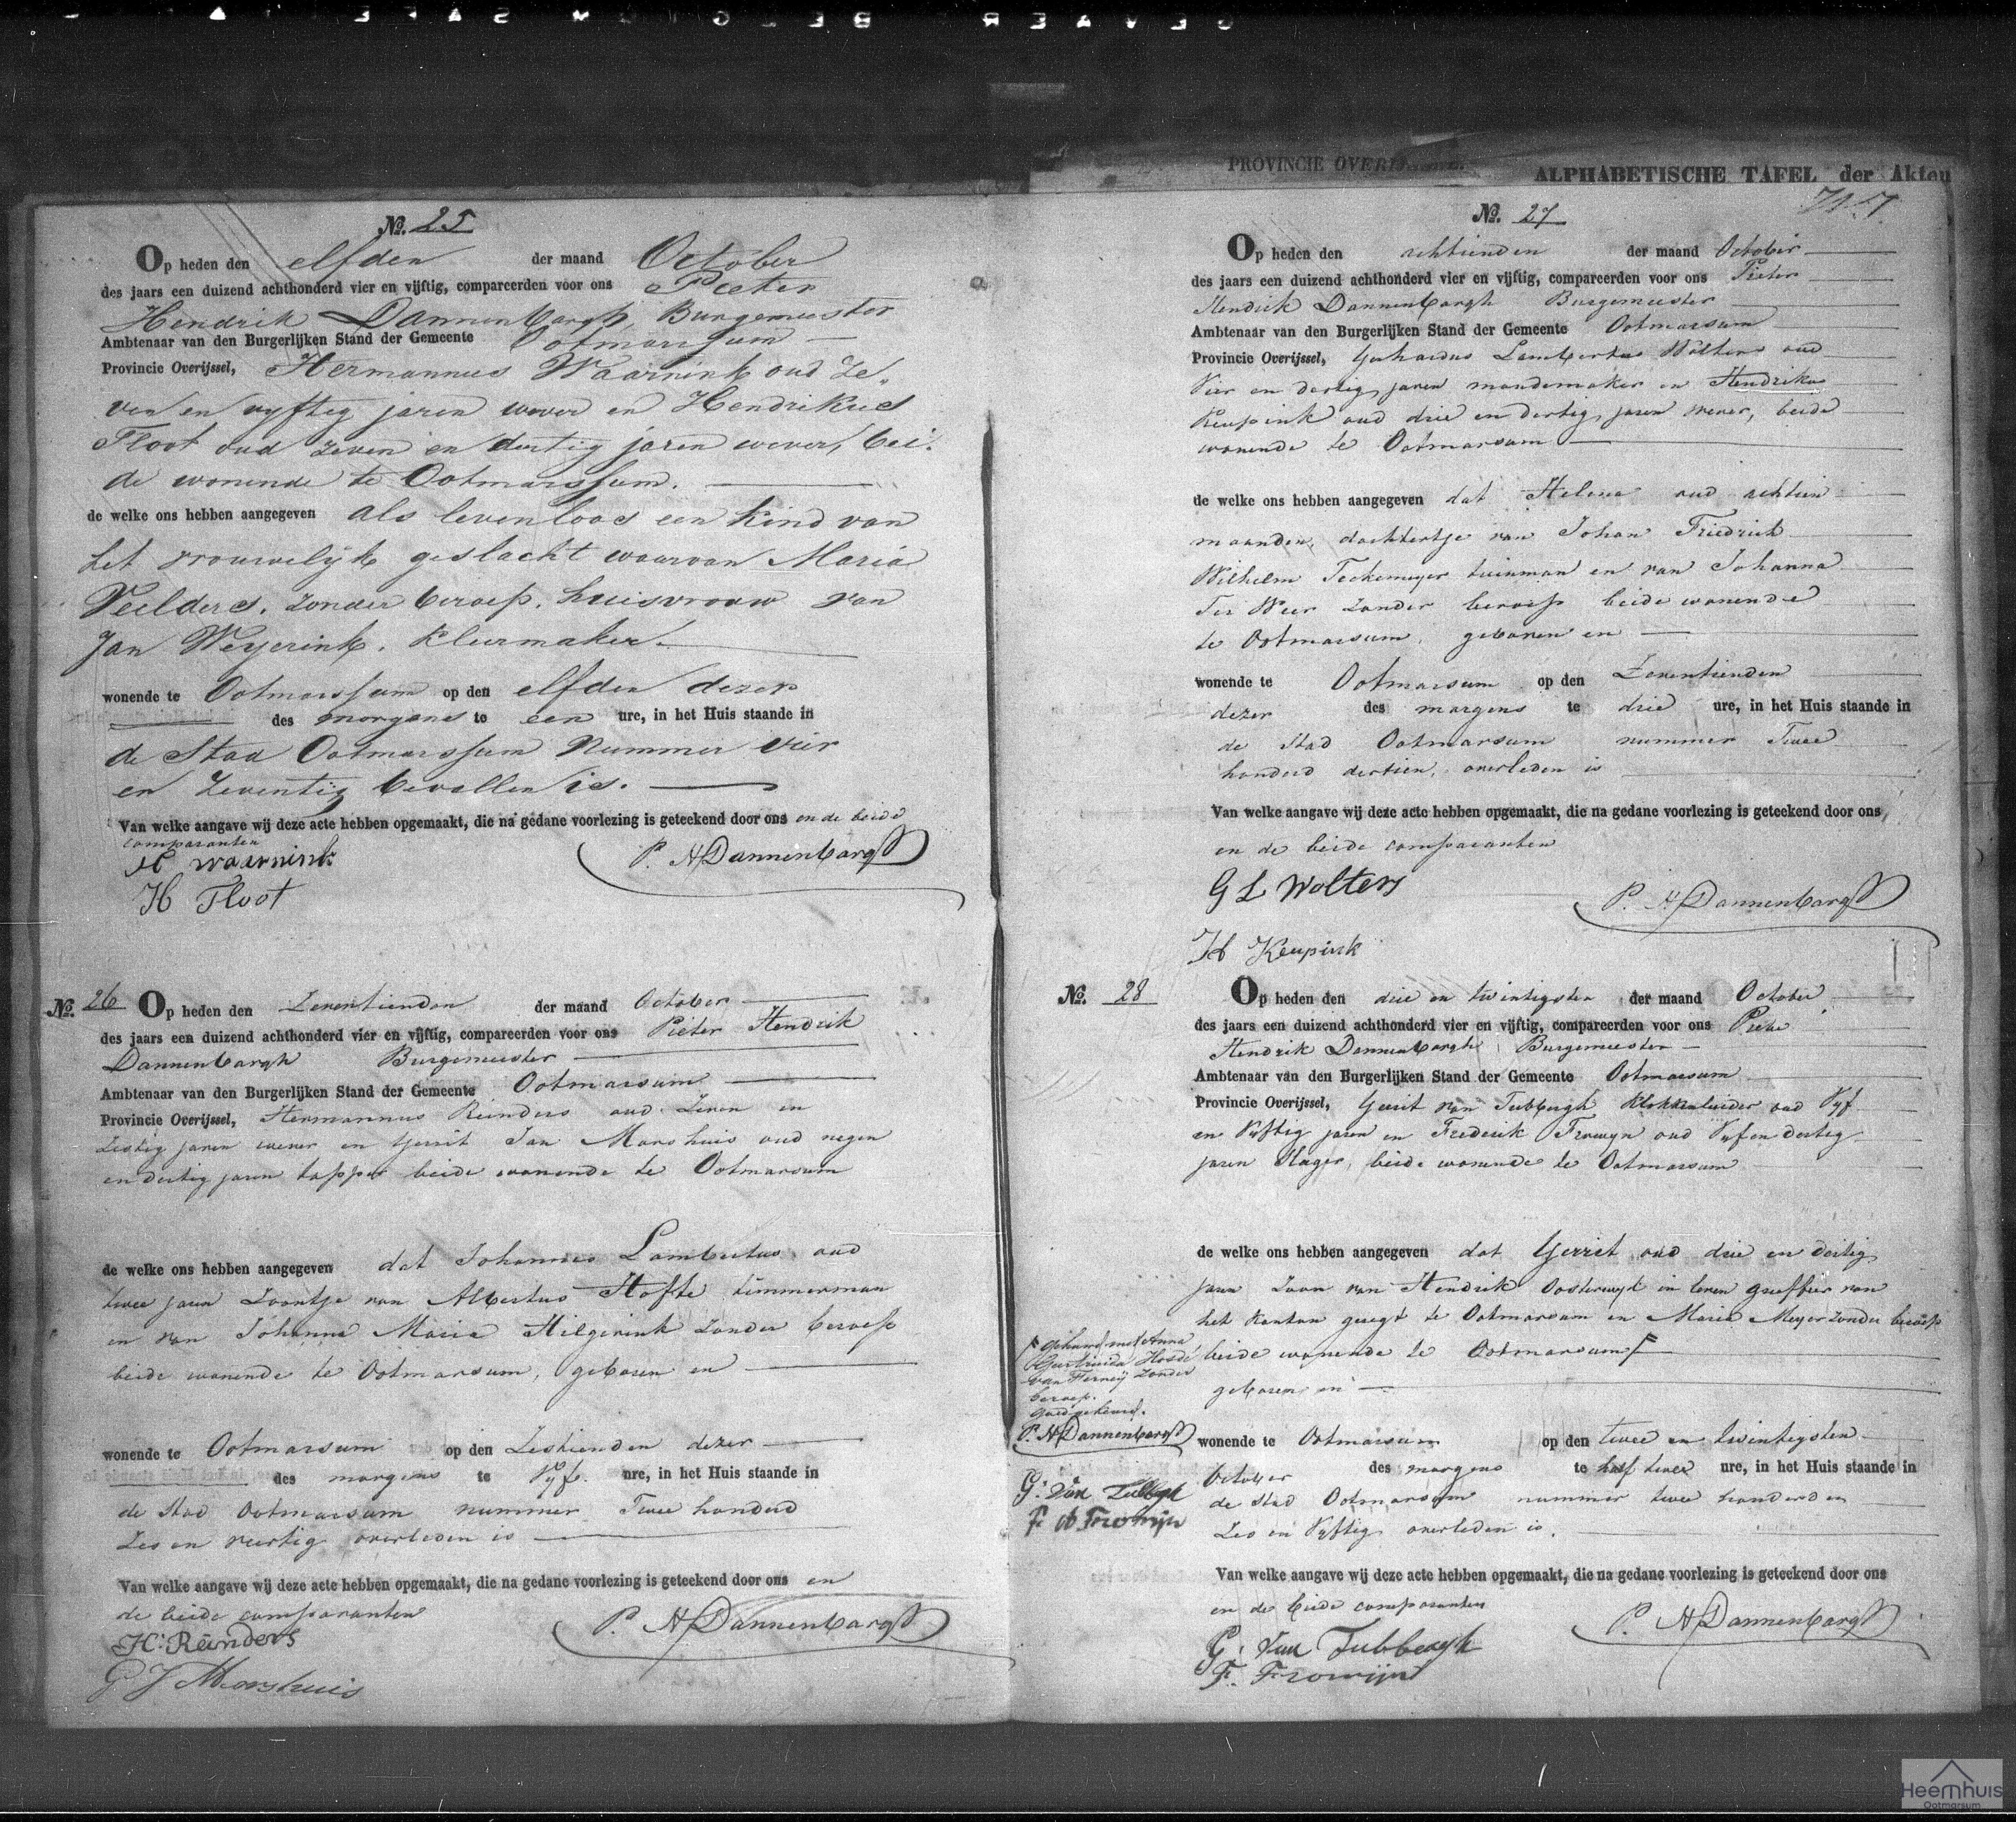 GEVAERT BELGIUM SAFE
PROVINCIE OVERIJSSEL.
ALPHABETISCHE TAFEL der Akten
No. 25
Op heden den elfden der maand October
des jaars een duizend achthonderd vier en vijftig, compareerden voor ons Pieter
Hendrik Dannenbargh, Burgemeester
Ambtenaar van den Burgerlijken Stand der Gemeente Ootmarssum
Provincie Overijssel, Hermannus Waarnink oud Ze-
ven en vyftig jaren wever en Hendrikus
Floot oud zeven en dertig jaren wever, bei-
de wonende te Ootmarssum.
de welke ons hebben aangegeven als levenloos een kind van
het vrouwelijk geslacht waarvan Maria
Veelders, zonder beroep, huisvrouw van
Jan Weyerink, kleermaker
wonende te Ootmarssum op den elfden dezer
des morgens te een ure, in het Huis staande in
de Stad Ootmarssum Nummer vier
en Zeventig bevallen is.
Van welke aangave wij deze acte hebben opgemaakt, die na gedane voorlezing is geteekend door ons en de beide
comparanten
H Waarnink
P. H Dannenbargh
H Floot
No. 26 Op heden den Zeventienden der maand October
des jaars een duizend achthonderd vier en vijftig, compareerden voor ons Pieter Hendrik
Dannenbargh Burgemeester
Ambtenaar van den Burgerlijken Stand der Gemeente Ootmarsum
Provincie Overijssel, Hermannus Reinders oud Zeven en
Zestig jaren wever en Gerrit Jan Morshuis oud negen
en dertig jaren tapper beide wonende te Ootmarsum
de welke ons hebben aangegeven dat Johannes Lambertus oud
twee jaren Zoontje van Albertus Hofte timmerman
en van Johanna Maria Hilgerink zonder beroep
beide wonende te Ootmarsum, geboren en
wonende te Ootmarsum op den Zestienden dezer
des morgens te Vyf ure, in het Huis staande in
de Stad Ootmarsum nummer Twee honderd
Zes en veertig overleden is
Van welke aangave wij deze acte hebben opgemaakt, die na gedane voorlezing is geteekend door ons en
de beide comparanten
P. H Dannenbargh
H: Reinders
G J Morshuis
No. 27
Op heden den achtienden der maand October
des jaars een duizend achthonderd vier en vijftig, compareerden voor ons Pieter
Hendrik Dannenbargh Burgemeester
Ambtenaar van den Burgerlijken Stand der Gemeente Ootmarsum
Provincie Overijssel, Gerhardus Lambertus Wolters oud
Vier en dertig jaren mandemaker en Hendrikus
Keupink oud drie en dertig jaren wever, beide
wonende te Ootmarsum
de welke ons hebben aangegeven dat Helena oud achtien
maanden, dochtertje van Johan Friedrich
Wilhelm Teckemeyer tuinman en van Johanna
Ter Weer zonder beroep beide wonende
te Ootmarsum, geboren en
wonende te Ootmarsum op den Zeventienden
dezer des morgens te drie ure, in het Huis staande in
de Stad Ootmarsum nummer Twee
honderd dertien, overleden is
Van welke aangave wij deze acte hebben opgemaakt, die na gedane voorlezing is geteekend door ons,
en de beide comparanten
G L Wolters
P. H Dannenbargh
H Keupink
No. 28 Op heden den drie en twintigsten der maand October
des jaars een duizend achthonderd vier en vijftig, compareerden voor ons Pieter
Hendrik Dannenbargh Burgemeester
Ambtenaar van den Burgerlijken Stand der Gemeente Ootmarsum
Provincie Overijssel, Gerrit van Tubbergh Klokkenluider oud Vyf
en Vyftig jaren en Frederik Frowyn oud Vyf en dertig
jaren Slager, beide wonende te Ootmarsum
de welke ons hebben aangegeven dat Gerrit oud drie en dertig
jaren Zoon van Hendrik Oosterwyk in leven griffier van
het kanton geregt te Ootmarsum en Maria Meyer zonder beroep
beide wonende te Ootmarsum F
geboren en
F gehuwd met Anna
Geertruida
van zonder
beroep.
Goedgekeurd.
P. H Dannenbargh
G: van Tubbergh
F Frowijn
wonende te Ootmarsum op den twee en twintigsten
October des morgens te half twee ure, in het Huis staande in
de Stad Ootmarsum nummer twee honderd en
Zes en Vyftig overleden is.
Van welke aangave wij deze acte hebben opgemaakt, die na gedane voorlezing is geteekend door ons
en de beide comparanten
P. H Dannenbargh
G: van Tubbergh
F. Frowijn
Heemhuis
Ootmarsum